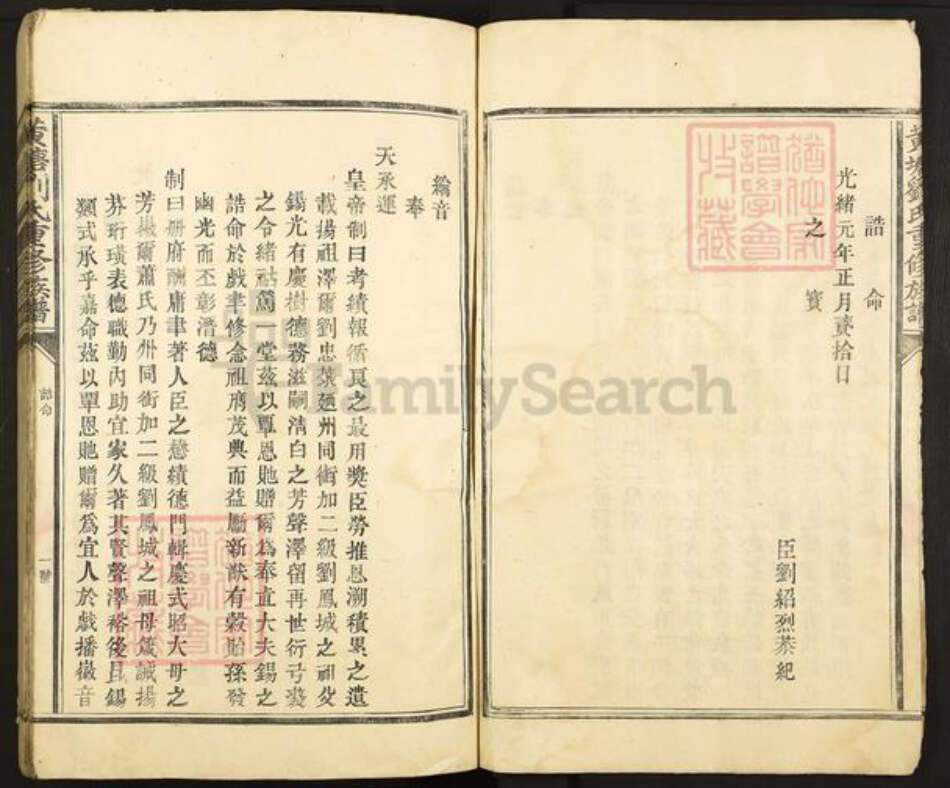 黃塘劉氏重修族譜
誥命
光緒元年正月貳拾日
之寶
臣劉紹烈恭紀
綸音
奉
天承運
皇帝制曰考績報循良之最用獎臣勞推恩溯積累之遺
載揚祖澤爾劉忠棻廼州同銜加二級劉鳳城之祖父
錫光有慶樹德務滋嗣清白之芳聲澤留再世衍弓裘
之令緒祜篤一堂茲以覃恩貤贈爾爲奉直大夫錫之
誥命於戲聿修念祖膺茂典而益勵新猷有穀貽孫發
幽光而丕彰潛德
制曰册府酬庸聿著人臣之懋績德門輯慶式昭大母之
芳徽爾蕭氏乃州同銜加二級劉鳳城之祖母箴誡揚
芬珩璜表德職勤內助宜家久著其賢聲澤裕後昆錫
類式承乎嘉命茲以覃恩貤贈爾爲宜人於戲播徽音
黃塘劉氏重修族譜
誥命
一號
譜學會
收藏
FamilySearch